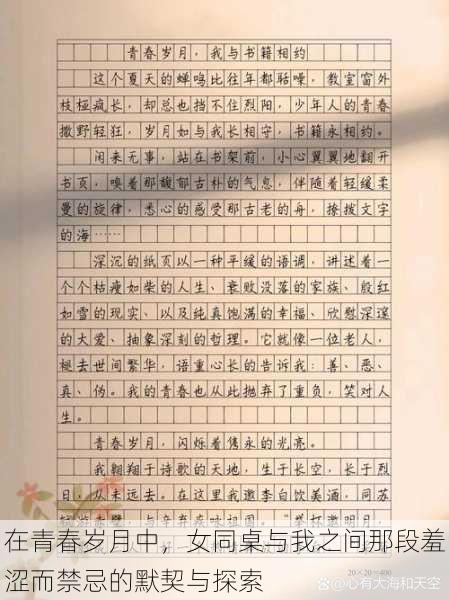 青春岁月，我与书籍相约
这个夏天的蝉鸣比往年都聒噪，教室窗外
枝桠疯长，却总也挡不住烈阳，少年人的青春
撒野轻狂，岁月如与我长相守，书籍永相约。
闲来无事，站在书架前，小心翼翼地翻开
书页，嗅着那馥郁古朴的气息，伴随着轻缓柔
曼的旋律，悉心的感受那古老的舟，撩拨文字
的海……
深沉的纸页以一种平缓的语调，讲述着一
个个枯瘦如柴的人生、衰败没落的家族、殷红
如雪的现实、以及纯真饱满的幸福、欣慰深邃
的大爱、抽象深刻的哲理。它就像一位老人，
褪去世间繁华，语重心长的告诉我：善、恶、
真、伪。我的青春也从此抛弃了重负，笑对人
生。
青春岁月，闪烁着隽永的光亮。
我翱翔于诗歌的天地，生于长空，长于烈
日，从未远去。在这里我邀李白饮美酒，同苏
在青春岁月中，女同桌与我之间那段羞
涩而禁忌的默契与探索
20×20=400
@心有大海和天空